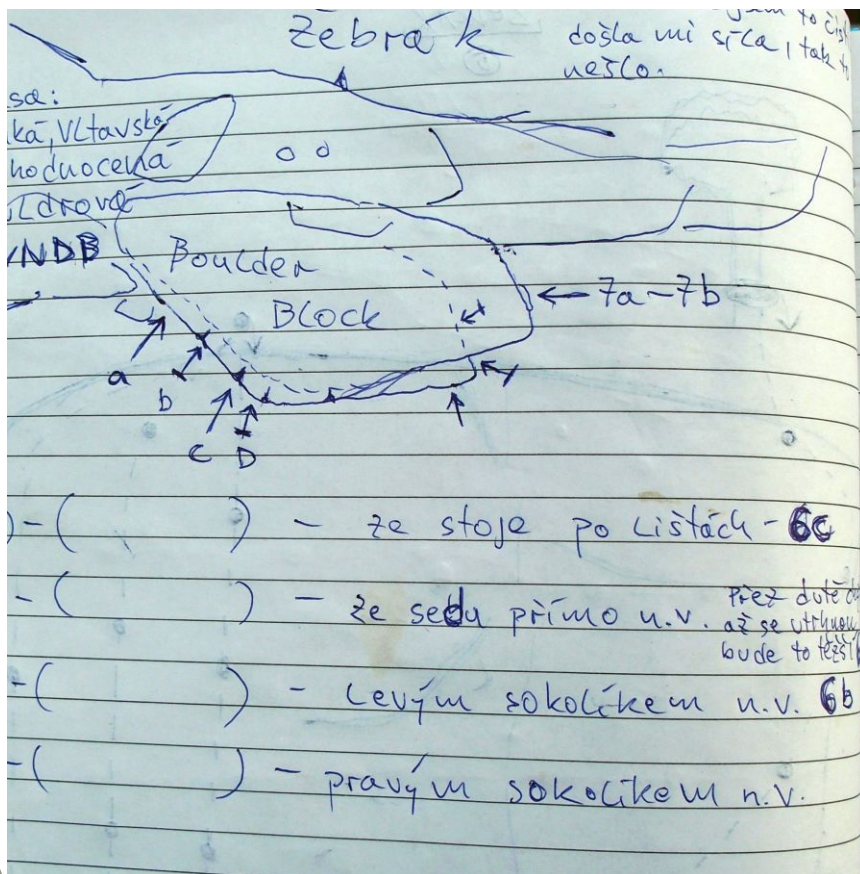 Žebrák
to
došla mi síla, tak to
nešlo.
sa:
ká, Vltavská
hodnocená
ldrová
VNDB
Boulder
Block
← 7a - 7b
a
b
c
D
) - ( ) - ze stoje po lištách - 6c
- ( ) - ze sedu přímo n.v. Přez duté
až se utrhnou
bude to těžší
- ( ) - levým sokolíkem n.v. 6b
- ( ) - pravým sokolíkem n.v.